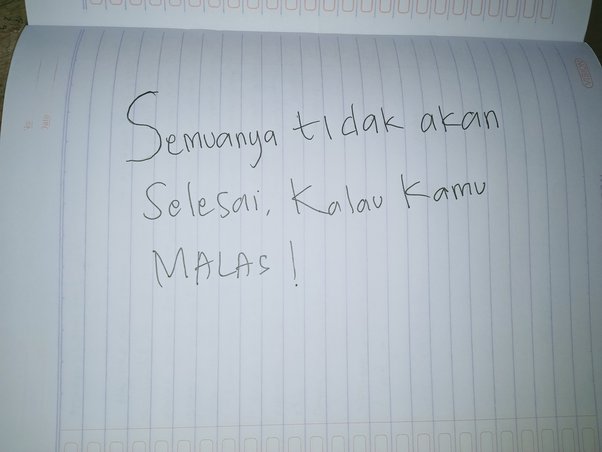 Semuanya tidak akan
Selesai, Kalau Kamu
MALAS!